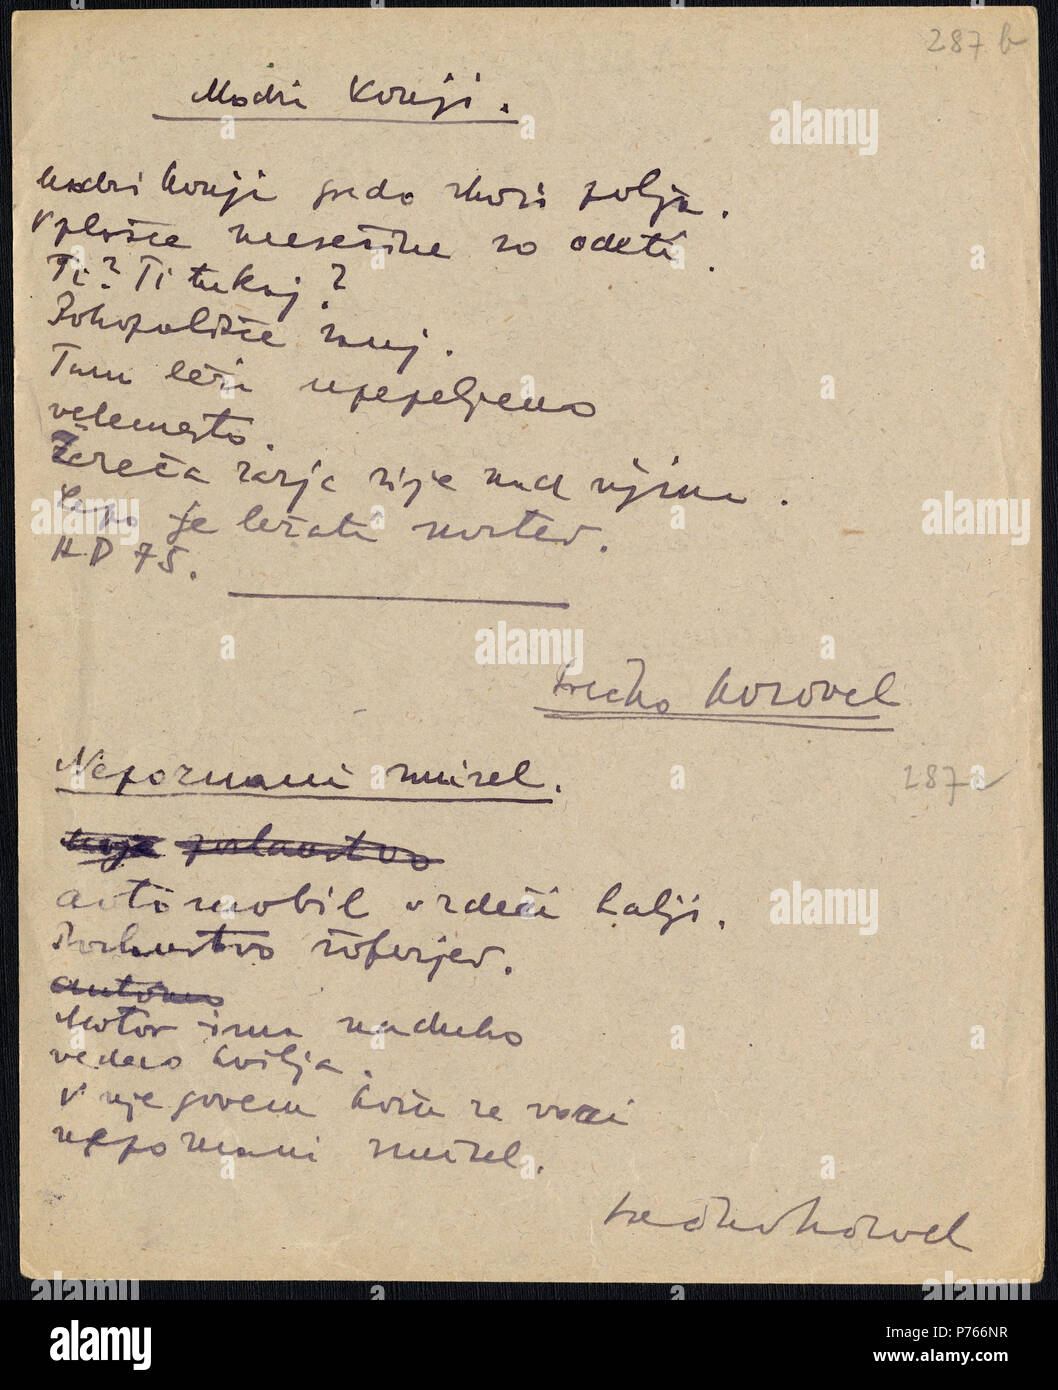 287 b
Modri Konji.
Modri konji gredo skozi polja.
V plašče mesečine so odeti.
Ti? Ti tukaj?
Pokopališče sanj.
Tam leži upepeljeno
velemesto.
Žareča zarja sije nad njim.
Lepo je ležati mrtev.
H D 75.
Srečko Kosovel
Nepoznani smisel.
287a
poslanstvo
avtomobil v rdeči halji.
Poslanstvo šoferjev.
avtomo
Motor ima naduho
vedno kašlja.
V njegovem
se vozi
nepoznani smisel.
Srečko Kosovel
alamy
a
alamy
Image ID: P766NR
www.alamy.com